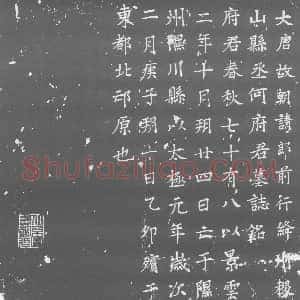 大唐故朝請郎前行絳州稷
山縣丞何府君墓誌銘
府君春秋七十有八以景雲
二年十月廿四日亡于陽
州縣以太極元年歲次
二月庚子朔二日乙卯殯于
東都北邙原也
Shufaziliao.com